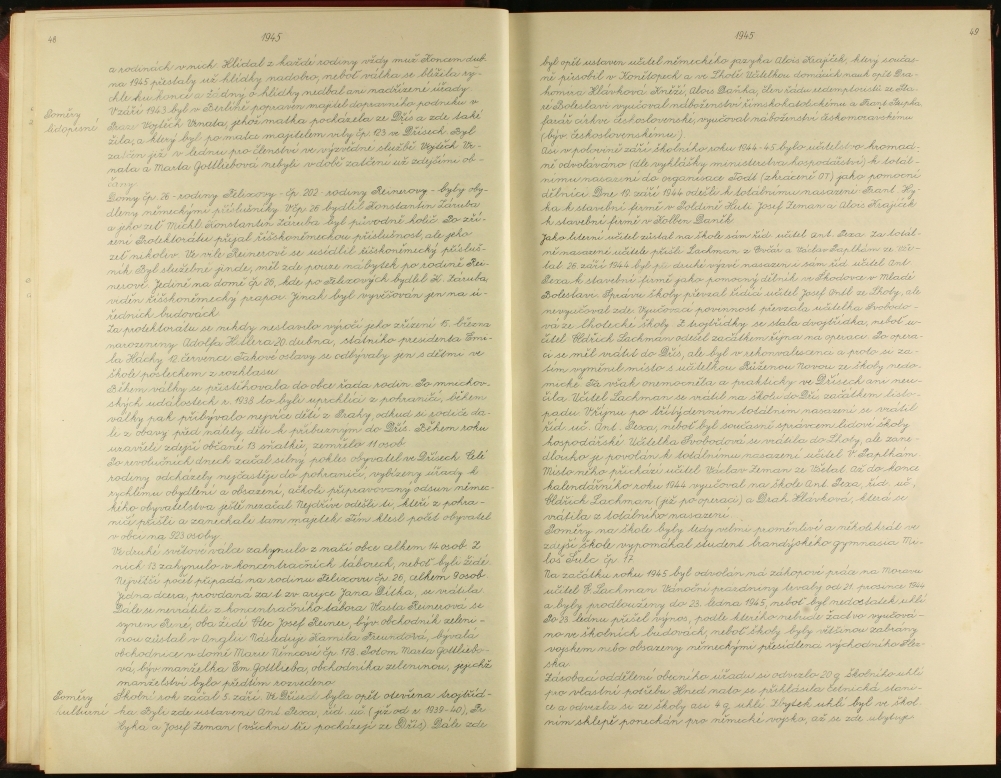 48
1945
a rodinách v nich. Hlídal z každé rodiny vždy muž. Koncem dub-
na 1945 přestaly už hlídky nadobro, neboť válka se blížila ry-
chle ku konci a žádný o hlídky nedbal ani nadřízené úřady.
Poměry
lidopisné
V září 1943 byl v Berlíně popraven majitel dopravního podniku v
Praze Vojtěch Vrnata, jehož matka pocházela ze Dřís a zde také
žila, a který byl po matce majitelem vily čp. 123 ve Dřísech. Byl
zatčen již v lednu pro členství ve výzvědné službě. Vojtěch Vr-
nata a Marta Gottliebová nebyli v době zatčení už zdejšími ob-
čany.
Domy čp. 26 - rodiny Felixovy - čp. 202 - rodiny Reinerovy - byly oby-
dleny německými příslušníky. V čp. 26 bydlil Konstantin Záruba
a jeho zeť Michl. Konstantin Záruba byl původně holič. Po zří-
zení Protektorátu přijal říšskoněmeckou příslušnost, ale jeho
zeť nikoliv. Ve vile Reinerově se usídlil říšskoněmecký přísluš-
ník. Byl služebně jinde, měl zde pouze nábytek po rodině Rei-
nerově. Jedině na domě čp. 26, kde po Felixových bydlil K. Záruba,
viděn říšskoněmecký prapor. Jinak byl vyvěšován jen na ú-
ředních budovách.
Za protektorátu se nikdy neslavilo výročí jeho zřízení 15. března,
narozeniny Adolfa Hitlera 20. dubna, státního presidenta Emi-
la Háchy 12. července. Takové oslavy se odbývaly jen s dětmi ve
škole poslechem z rozhlasu.
Během války se přistěhovala do obce řada rodin. Po mnichov-
ských událostech r. 1938 to byli uprchlíci z pohraničí, během
války pak přibývalo nejvíce dětí z Prahy, odkud si rodiče da-
li z obavy před nálety děti k příbuzným do Dřís. Během roku
uzavřeli zdejší občané 13 sňatků, zemřelo 11 osob.
Po revolučních dnech začal silný pokles obyvatel ve Dřísech. Celé
rodiny odcházely nejčastěji do pohraničí, vybízeny úřady k
rychlému obydlení a obsazení, ačkoli připravovaný odsun němec-
kého obyvatelstva ještě nezačal. Nejdříve odešli ti, kteří z pohra-
ničí přišli a zanechali tam majetek. Tím klesl počet obyvatel
v obci na 923 osoby.
Ve druhé světové válce zahynulo z naší obce celkem 14 osob. Z
nich 13 zahynulo v koncentračních táborech, neboť byli židé.
Největší počet připadá na rodinu Felixovu čp. 26, celkem 9 osob.
Jedna dcera, provdaná za t. zv. arijce Jana Ditka, se vrátila.
Dále se nevrátili z koncentračního tábora Vlasta Reinerová se
synem René, oba židé. Otec Josef Reiner, býv. obchodník zeleni-
nou zůstal v Anglii. Následuje Kamila Freundová, bývalá
obchodnice v domě Marie Němcové čp. 178. Potom Marta Gottliebo-
vá, býv. manželka Em. Gottlieba, obchodníka zeleninou, jejichž
manželství bylo předtím rozvedeno.
Poměry
kulturní
Školní rok začal 5. září. Ve Dřísech byla opět otevřena trojtříd-
ka. Byli zde ustaveni Ant. Pexa, říd. uč. (již od r. 1939-40), Fr.
Hyka a Josef Zeman (všichni tři pocházejí ze Dřís). Dále zde
49
1945
byl opět ustaven učitel německého jazyka Alois Krajíček, který součas-
ně působil v Konětopech a ve Lhotě. Učitelkou domácích nauk opět Dra-
homíra Hlávková. Kněží, Alois Daňka, člen řádu redemptoristů ze Sta-
ré Boleslavi vyučoval náboženství římskokatolickému a Frant. Stupka
farář církve československé, vyučoval náboženství českomoravskému
(býv. československému).
Asi v polovině září školního roku 1944-45 bylo učitelstvo hromad-
ně odvoláváno (dle vyhlášky ministerstva hospodářství) k totál-
nímu nasazení do organisace Todt (zkráceně OT) jako pomocní
dělníci. Dne 19. září 1944 odešli k totálnímu nasazení Frant. Hy-
ka k stavební firmě v Poldině Huti, Josef Zeman a Alois Krajíček
k stavební firmě v Kolben Daněk.
Jako literní učitel zůstal na škole sám říd. učitel Ant. Pexa. Za totál-
ně nasazené učitele přišli Lachman z Ovčár a Václav Papthám ze Vše-
tat. 26. září 1944 byl při druhé výzvě nasazen i sám říd. učitel Ant.
Pexa k stavební firmě jako pomocný dělník ve Škodovce v Mladé
Boleslavi. Správu školy převzal řídící učitel Josef Ondl ze Lhoty, ale
nevyučoval zde. Vyučovací povinnost převzala učitelka Svobodo-
vá ze lhotecké školy. Z trojtřídky se stala dvojtřídka, neboť u-
čitel Oldřich Lachman odešel začátkem října na operaci. Po opera-
ci se měl vrátit do Dřís, ale byl v rekonvalescenci a proto si za-
tím vyměnil místo s učitelkou Růženou Novou ze školy nedo-
mické. Ta však onemocněla a prakticky ve Dřísech ani neu-
čila. Učitel Lachman se vrátil na školu do Dřís začátkem listo-
padu. V říjnu po třítýdenním totálním nasazení se vrátil
říd. uč. Ant. Pexa, neboť byl současně správcem lidové školy
hospodářské. Učitelka Svobodová se vrátila do Lhoty, ale zane-
dlouho je povolán k totálnímu nasazení učitel V. Papthám.
Místo něho přichází učitel Václav Zeman ze Všetat. Až do konce
kalendářního roku 1944 vyučoval na škole Ant. Pexa, říd. uč.,
Oldřich Lachman (již po operaci) a Drah. Hlávková, která se
vrátila z totálního nasazení.
Poměry na škole byly tedy velmi proměnlivé a několikrát ve
zdejší škole vypomáhal student brandýského gymnasia Mi-
loš Šulc čp. 17.
Na začátku roku 1945 byl odvolán na zákopové práce na Moravu
učitel O. Lachman. Vánoční prázdniny trvaly od 21. prosince 1944
a byly prodlouženy do 23. ledna 1945, neboť byl nedostatek uhlí.
Po 23. lednu přišel výnos, podle kterého nebude žactvo vyučová-
no ve školních budovách, neboť školy byly většinou zabrány
vojskem nebo obsazeny německými přesídlenci východního Slez-
ska.
Zásobovací oddělení obecního úřadu si odvezlo 20 q školního uhlí
pro vlastní potřebu. Hned nato se přihlásila četnická stani-
ce a odvezla si ze školy asi 4 q uhlí. Zbytek uhlí byl ve škol-
ním sklepě ponechán pro německé vojsko, až se zde ubytuje.